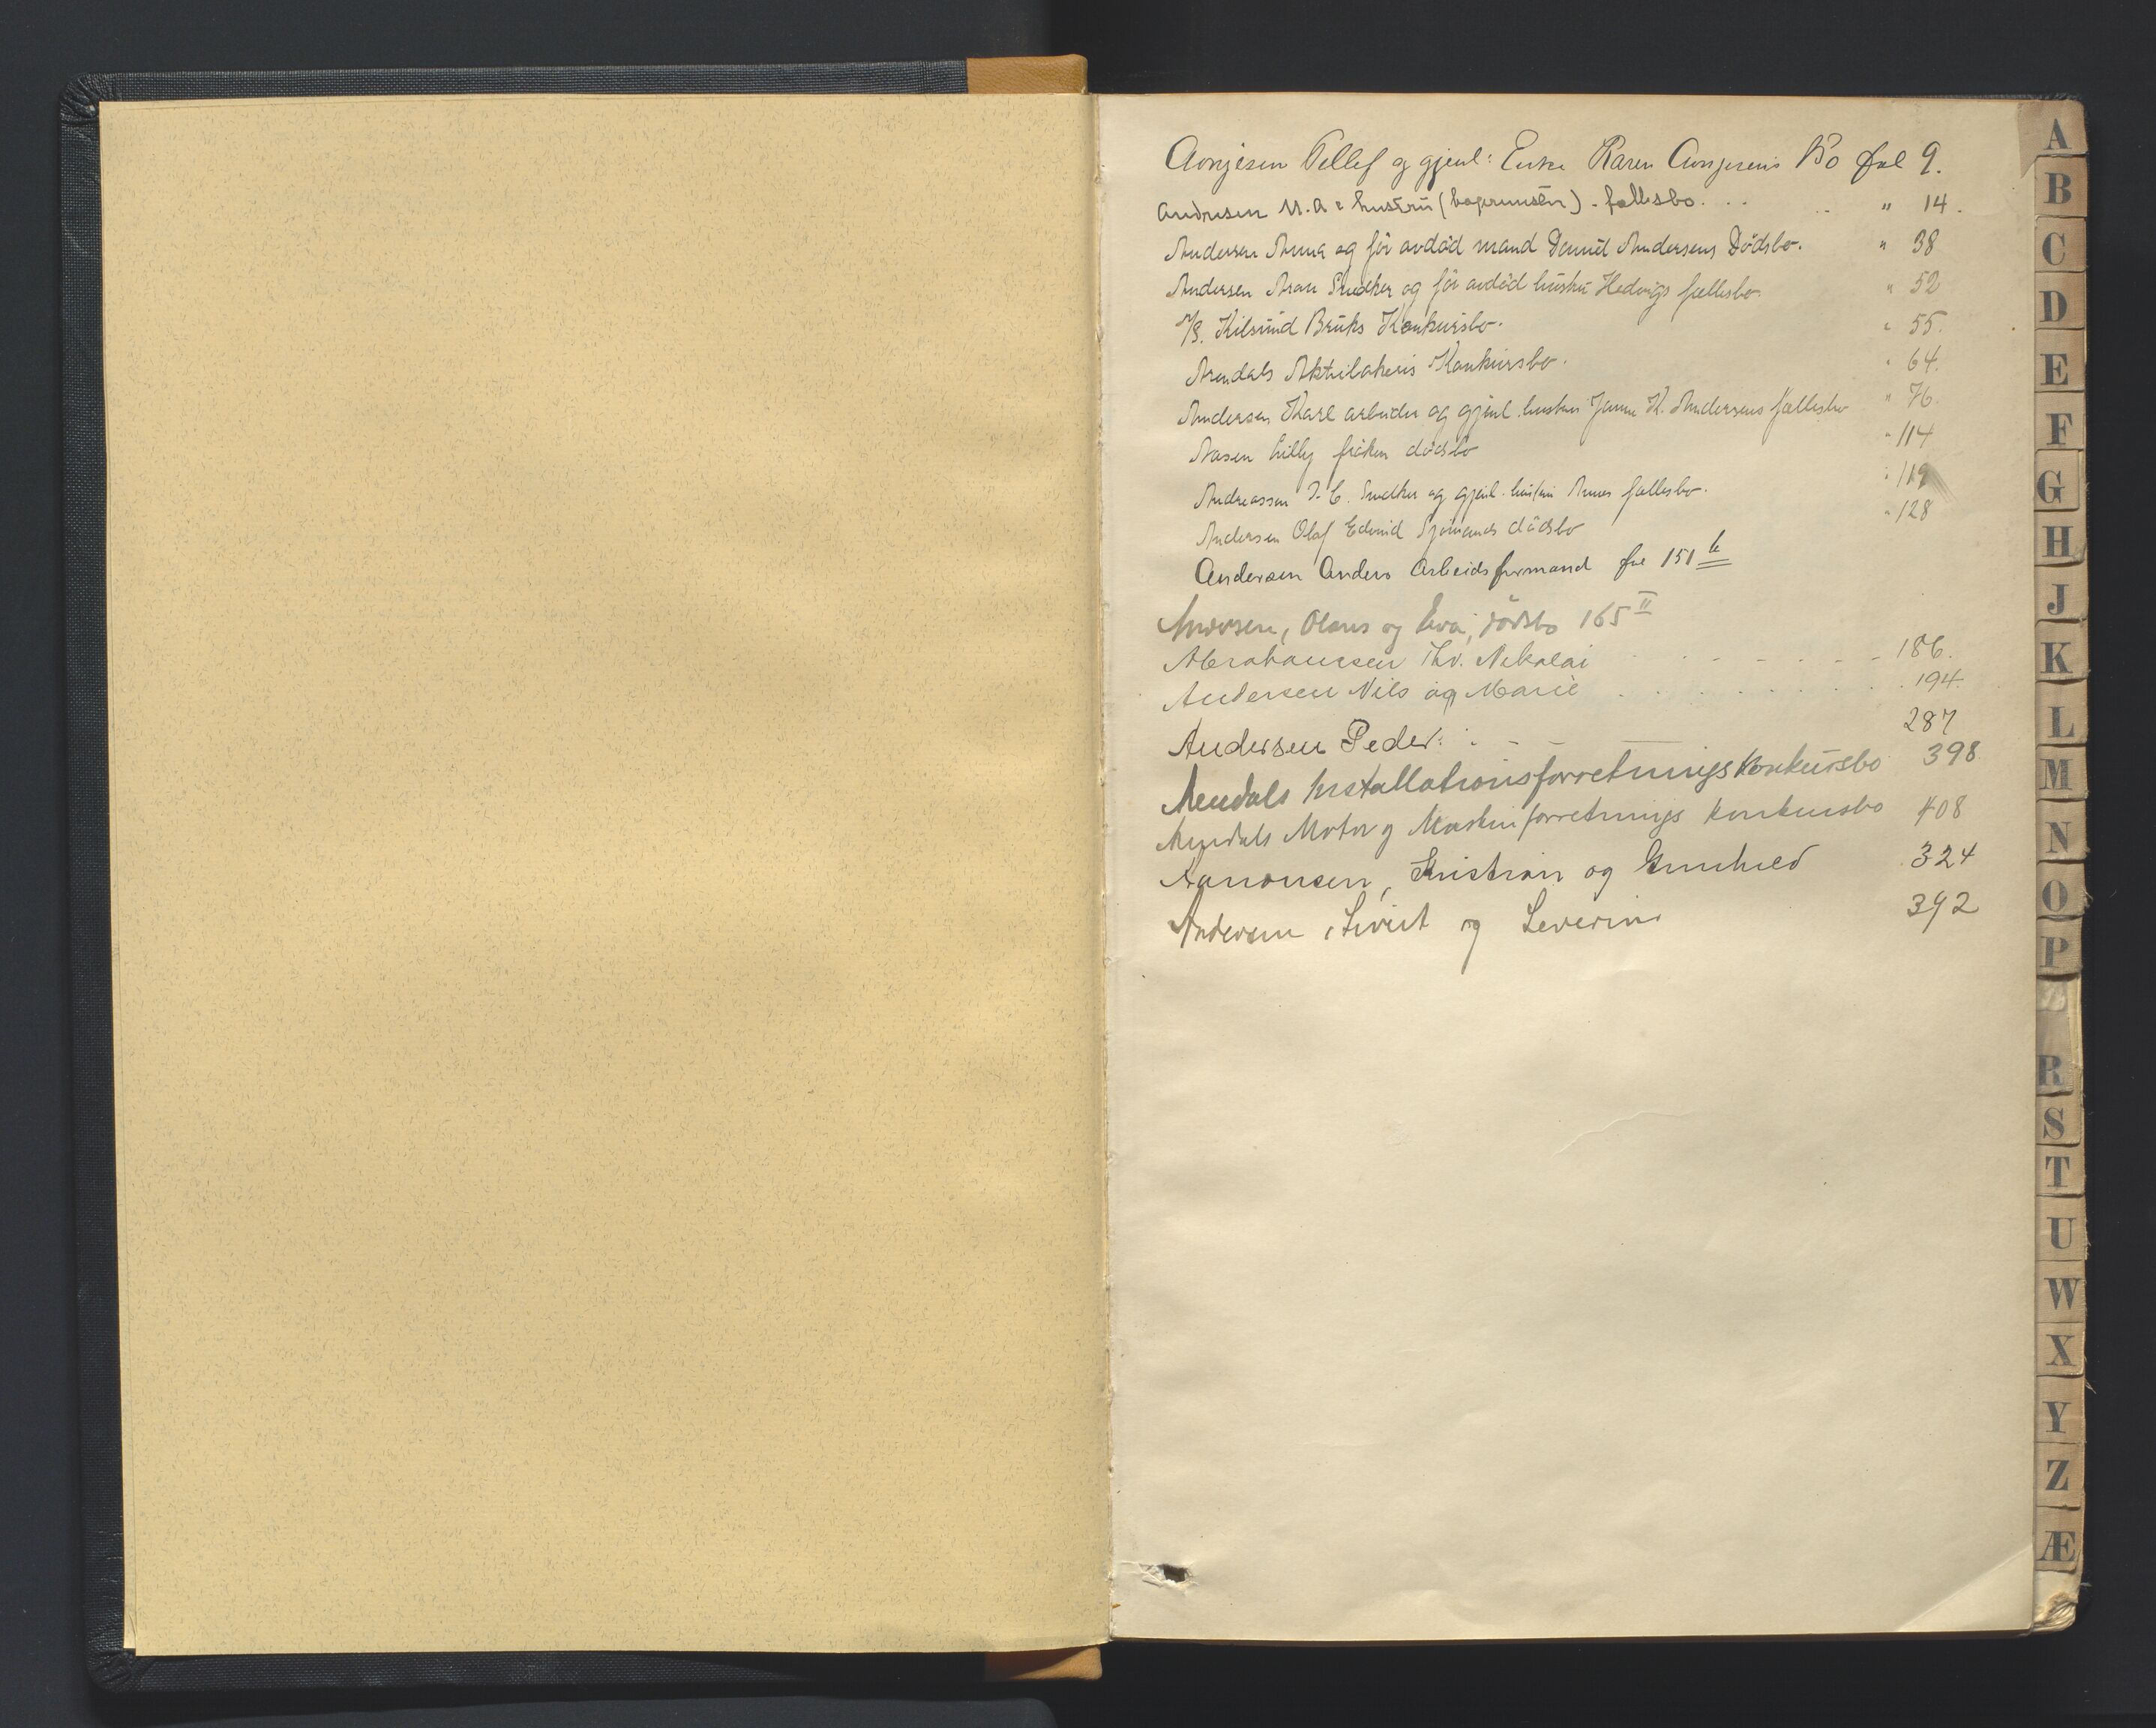 Aonjesen Tellef og gjenl: Enke Karen Aonjesens Bo fol 9.
Andresen M. A. & hustru - fællesbo. . . . . " 14.
Andersen Anna og før avdød mand Daniel Andersens Dödsbo. " 38
Andersen Aron Snedker og før avdöd hustru Hedvigs fællesbo. " 52
A/S. Kilsund Bruks Konkursbo. " 55.
Arendals Aktiebakeris Konkursbo. " 64.
Andersen Karl arbeider og gjenl. hustru Janne K. Andersens fællesbo " 76.
Aasen Lilly frøken dødsbo " 114
Andreassen J. C. Snedker og gjenl. hustru Annes fællesbo. " 119
Andersen Olaf Edvind Sjömands dödsbo " 128
Andersen Anders Arbeidsformand fol 151 b
Andersen, Olaus og Eva, dödsbo 165 II
Abrahamsen Thv. Nikolai - - - - - - 186.
Andersen Nils og Marie . . . . . . . . . 194.
Andersen Peder: . - - 287
Arendals Installationsforretnings Konkursbo 398
Arendals Motor og Maskinforretnings Konkursbo 408
Aanonsen, Kristian og Gunhild 324
Andersen, og Severin 392
A
B
C
D
E
F
G
H
J
K
L
M
N
O
P
R
S
T
U
W
X
Y
Z
Æ